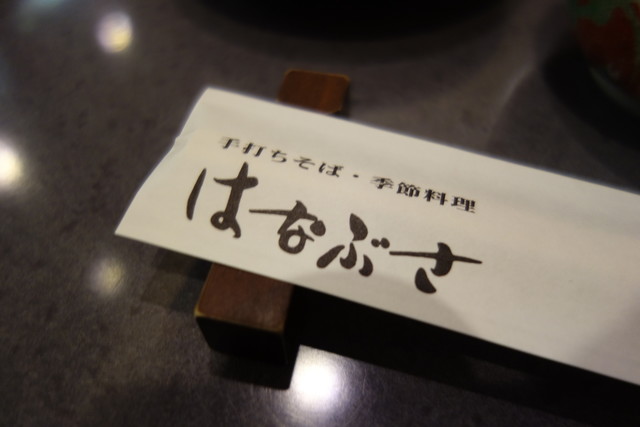 手打ちそば・季節料理
はなぶさ